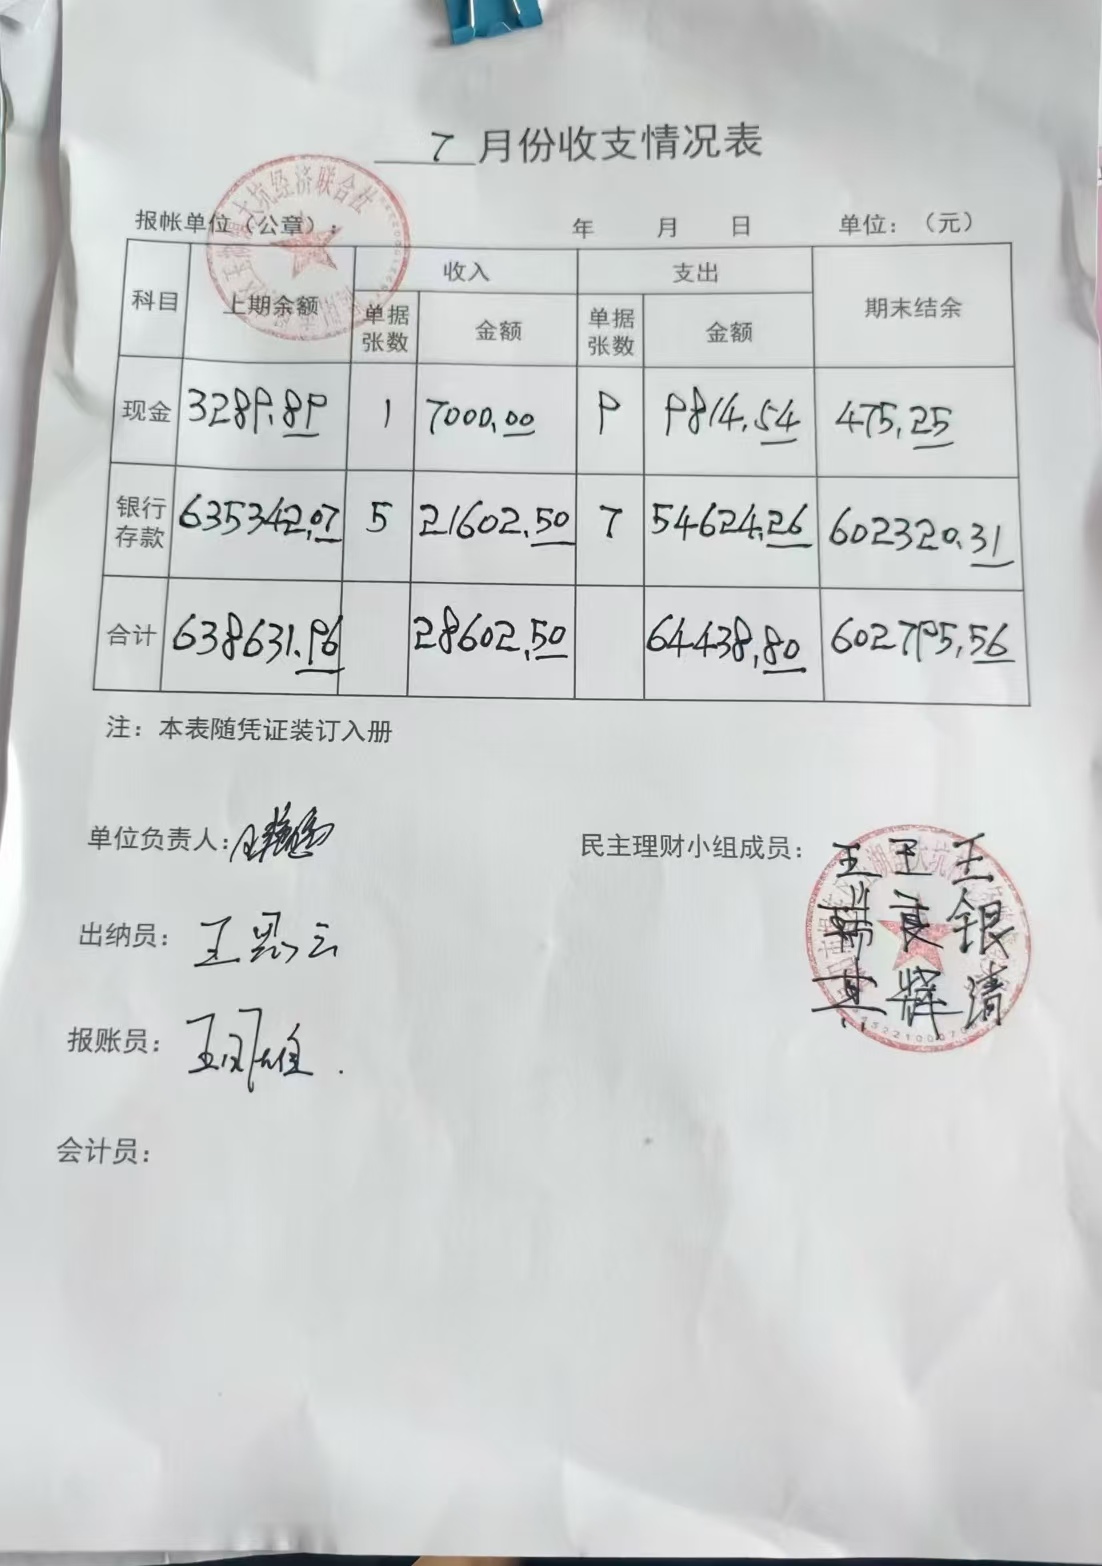 7月份收支情况表
报帐单位（公章）： 年 月 日 单位：（元）
科目 上期余额 收入 支出 期末结余
单据张数 金额 单据张数 金额
现金 3289.89 1 7000.00 9 9814.54 475.25
银行存款 635342.07 5 21602.50 7 54624.26 602320.31
合计 638631.96 28602.50 64438.80 602795.56
注：本表随凭证装订入册
单位负责人： 民主理财小组成员：
王 王 王
良 银
其 辉 清
出纳员：王 云
报账员：王
会计员：
大坑经济联合社